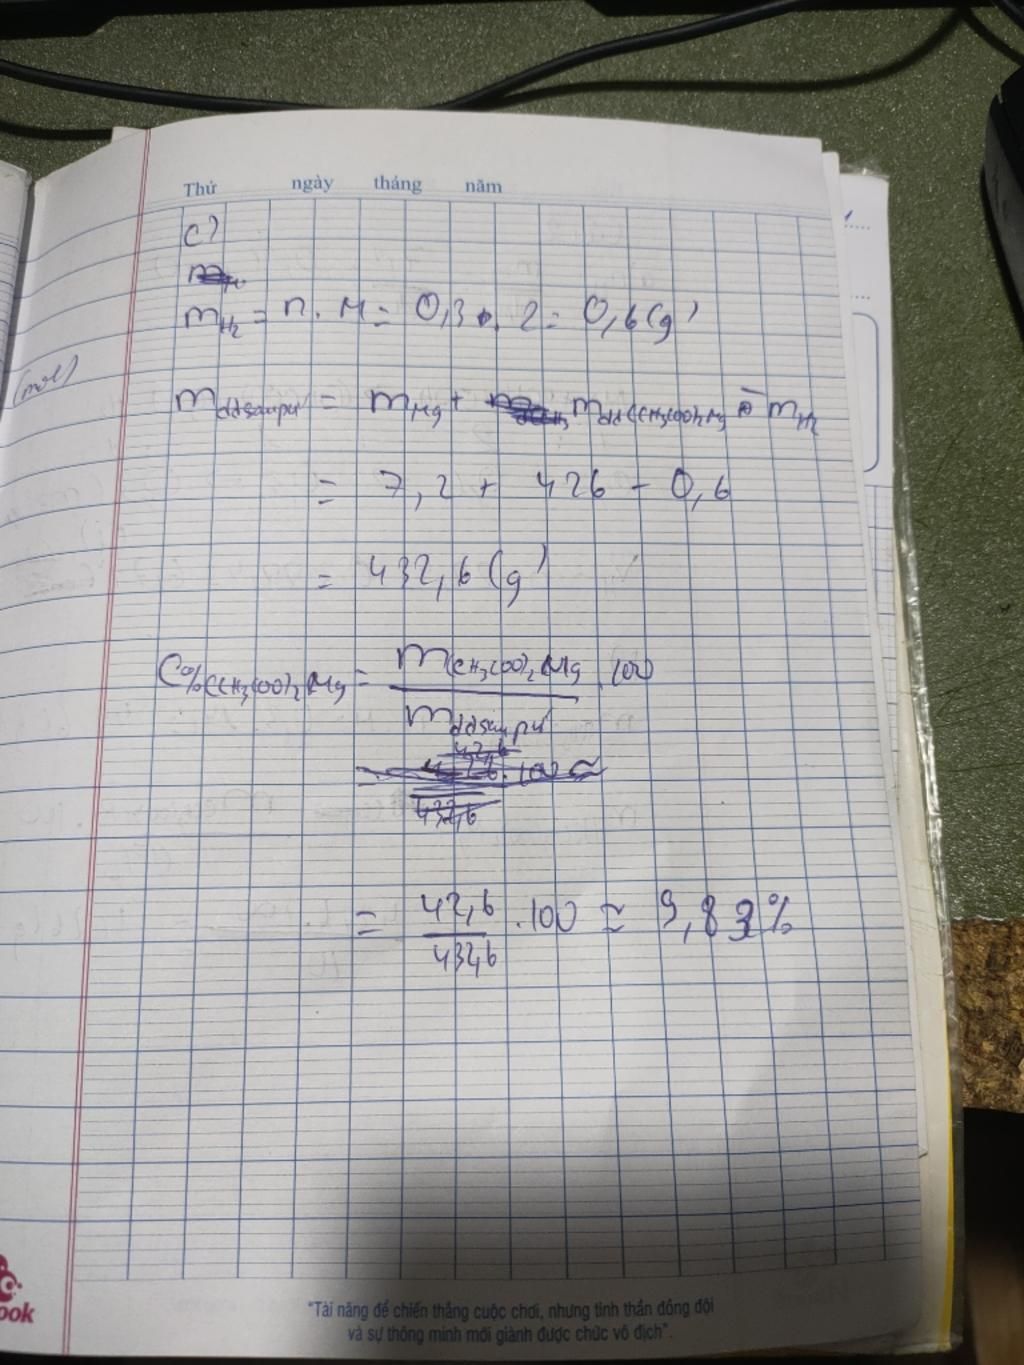 Thứ ngày tháng năm
c)
mH2 = n . M = 0,3 . 2 = 0,6 (g)
(mol)
mddsaupư = mMg + mdd(CH3COO)2Mg - mH2
= 7,2 + 426 - 0,6
= 432,6 (g)
C%(CH3COO)2Mg = m(CH3COO)2Mg / mddsaupư . 100
= 42,6 / 432,6 . 100 ≈ 9,83%
ook
"Tài năng để chiến thắng cuộc chơi, nhưng tinh thần đồng đội
và sự thông minh mới giành được chức vô địch".